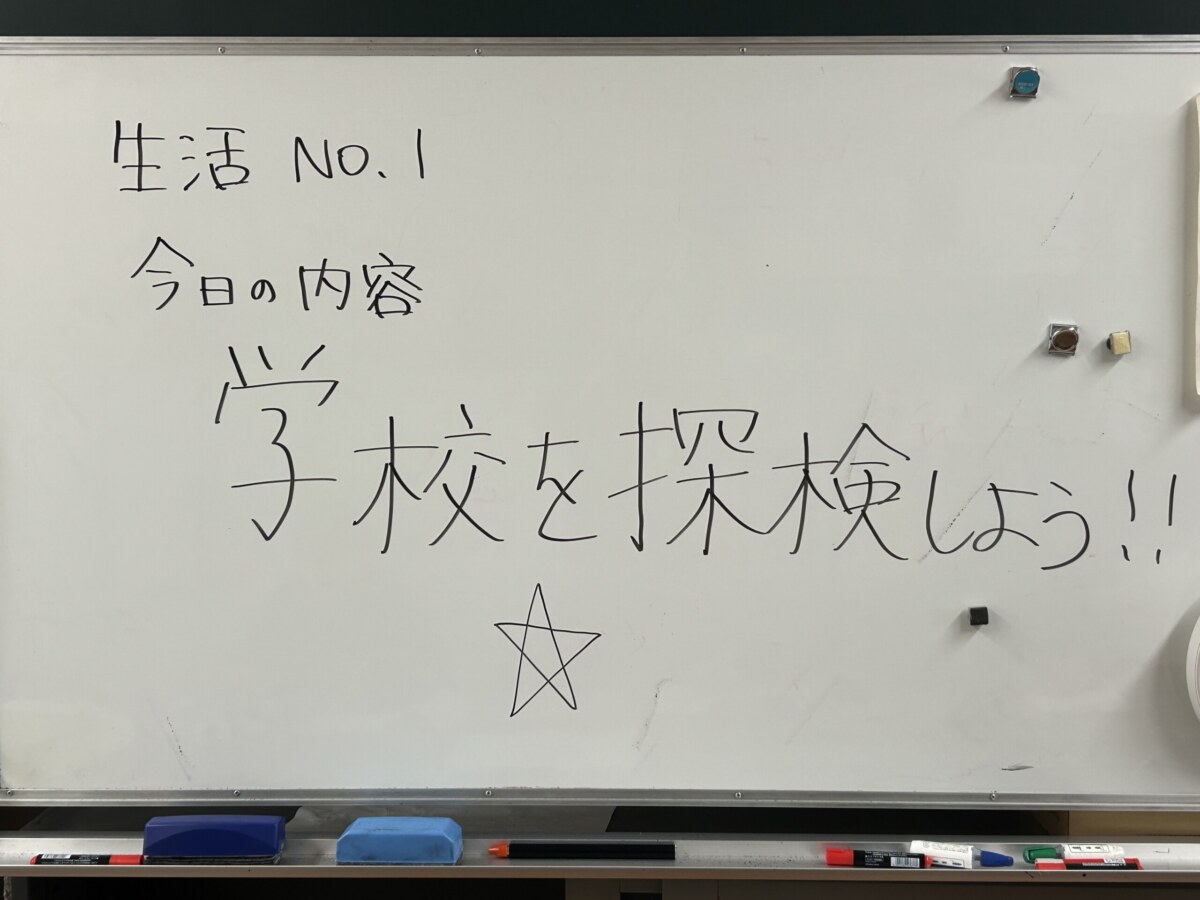 生活 NO.1
今日の内容
学校を探検しよう!!